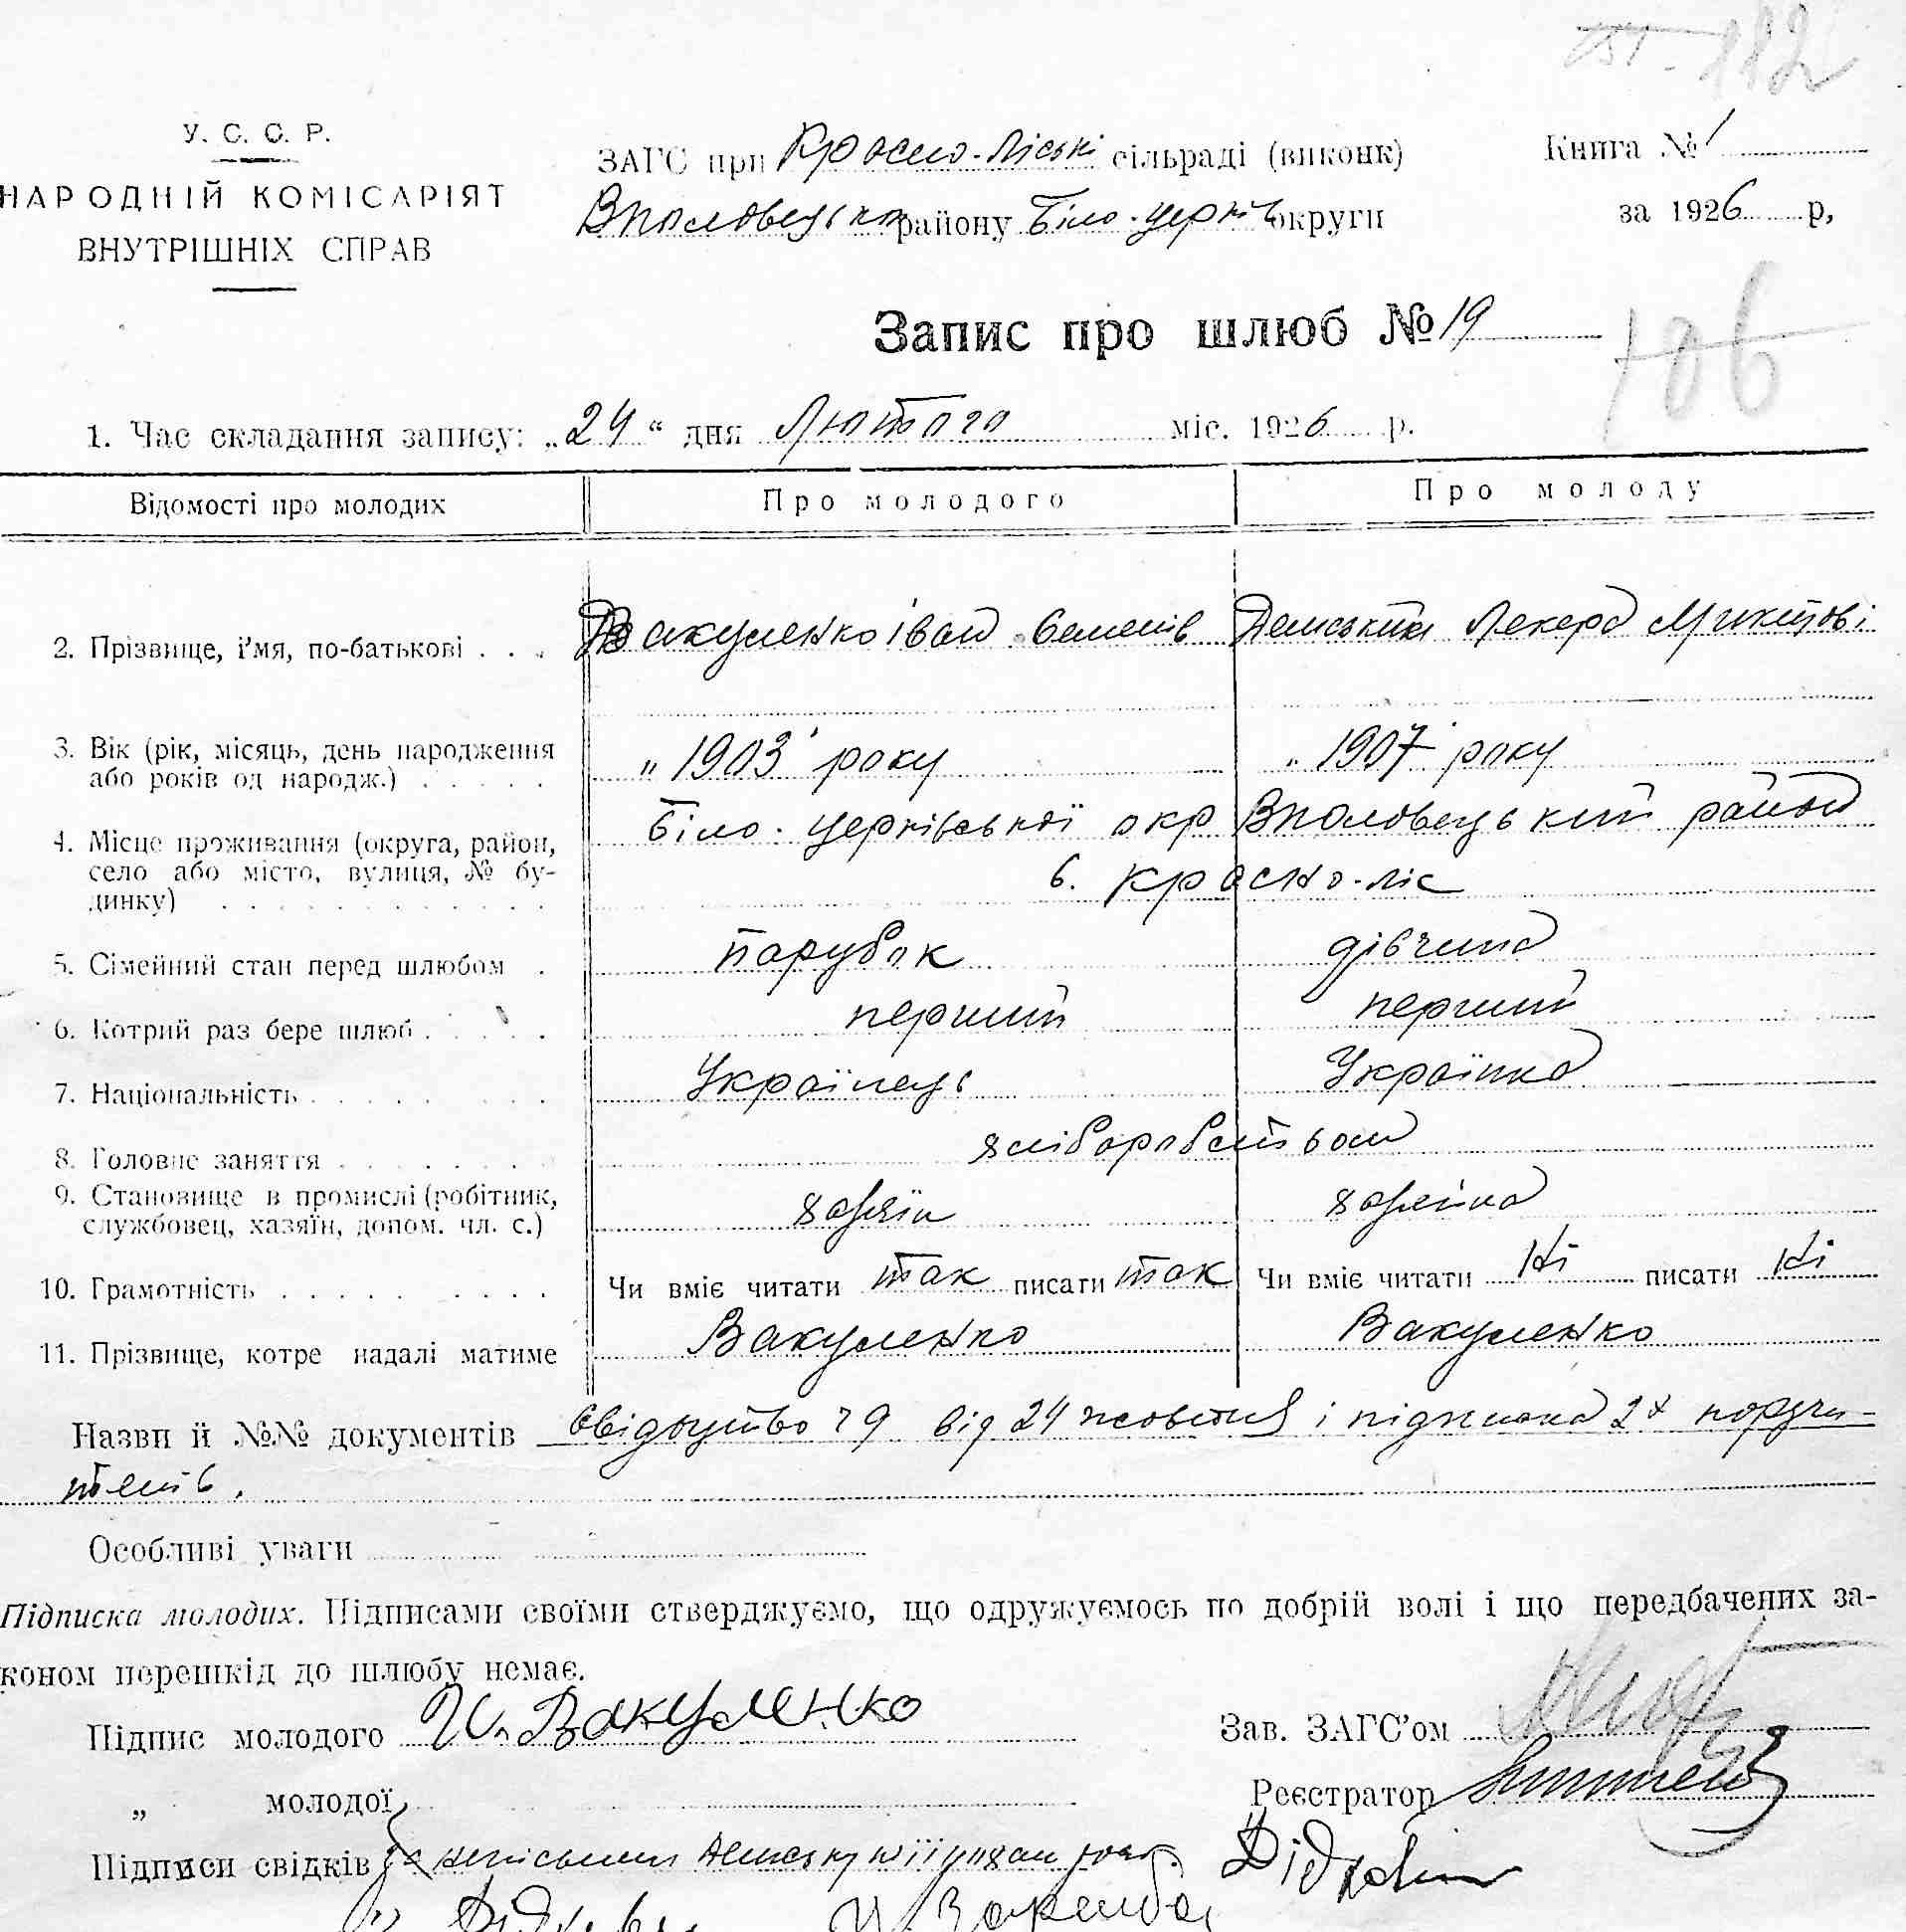 151 - 112
У. С. С. Р.
НАРОДНІЙ КОМІСАРІЯТ
ВНУТРІШНІХ СПРАВ
ЗАГС при Красно-Ліські сільраді (виконк)
Вполовецького району Біло-церків округи
Книга № 1
за 1926 р,
Запис про шлюб № 19
106
1. Час складання запису: „24“ дня Лютого міс. 1926 р.
Відомості про молодих Про молодого Про молоду
2. Прізвище, і'мя, по-батькові . . . Вакуленко Іван Семенів Демський Лекера Микитові
3. Вік (рік, місяць, день народження
або років од народж.) . . . . . „ 1903 року „ 1907 року
4. Місце проживання (округа, район,
село або місто, вулиця, № бу-
динку) . . . . . . . . . . . .
Біло-церківської окр Вполовецький район
с. Красно-ліс
5. Сімейний стан перед шлюбом . парубок дівчина
6. Котрий раз бере шлюб . . . . . перший перший
7. Національність . . . . . . . . Українець Українка
8. Головне заняття . . . . . . . хліборобством
9. Становище в промислі (робітник,
службовец, хазяїн, допом. чл. с.) хазяїн хазяїна
10. Грамотність . . . . . . . . . Чи вміє читати так писати так Чи вміє читати Ні писати Ні
11. Прізвище, котре надалі матиме Вакуленко Вакуленко
Назви й №№ документів Свідоцтво 79 від 24 жовтня і підписка 2х поручи-
телів.
Особливі уваги
Підписка молодих. Підписами своїми стверджуємо, що одружуємось по добрій волі і що передбачених за-
коном перешкід до шлюбу немає.
Підпис молодого И. Вакуленко
Зав. ЗАГС'ом
„ молодої
Реєстратор
Підписи свідків За неписьмен Демську її прохан
И. Заремба